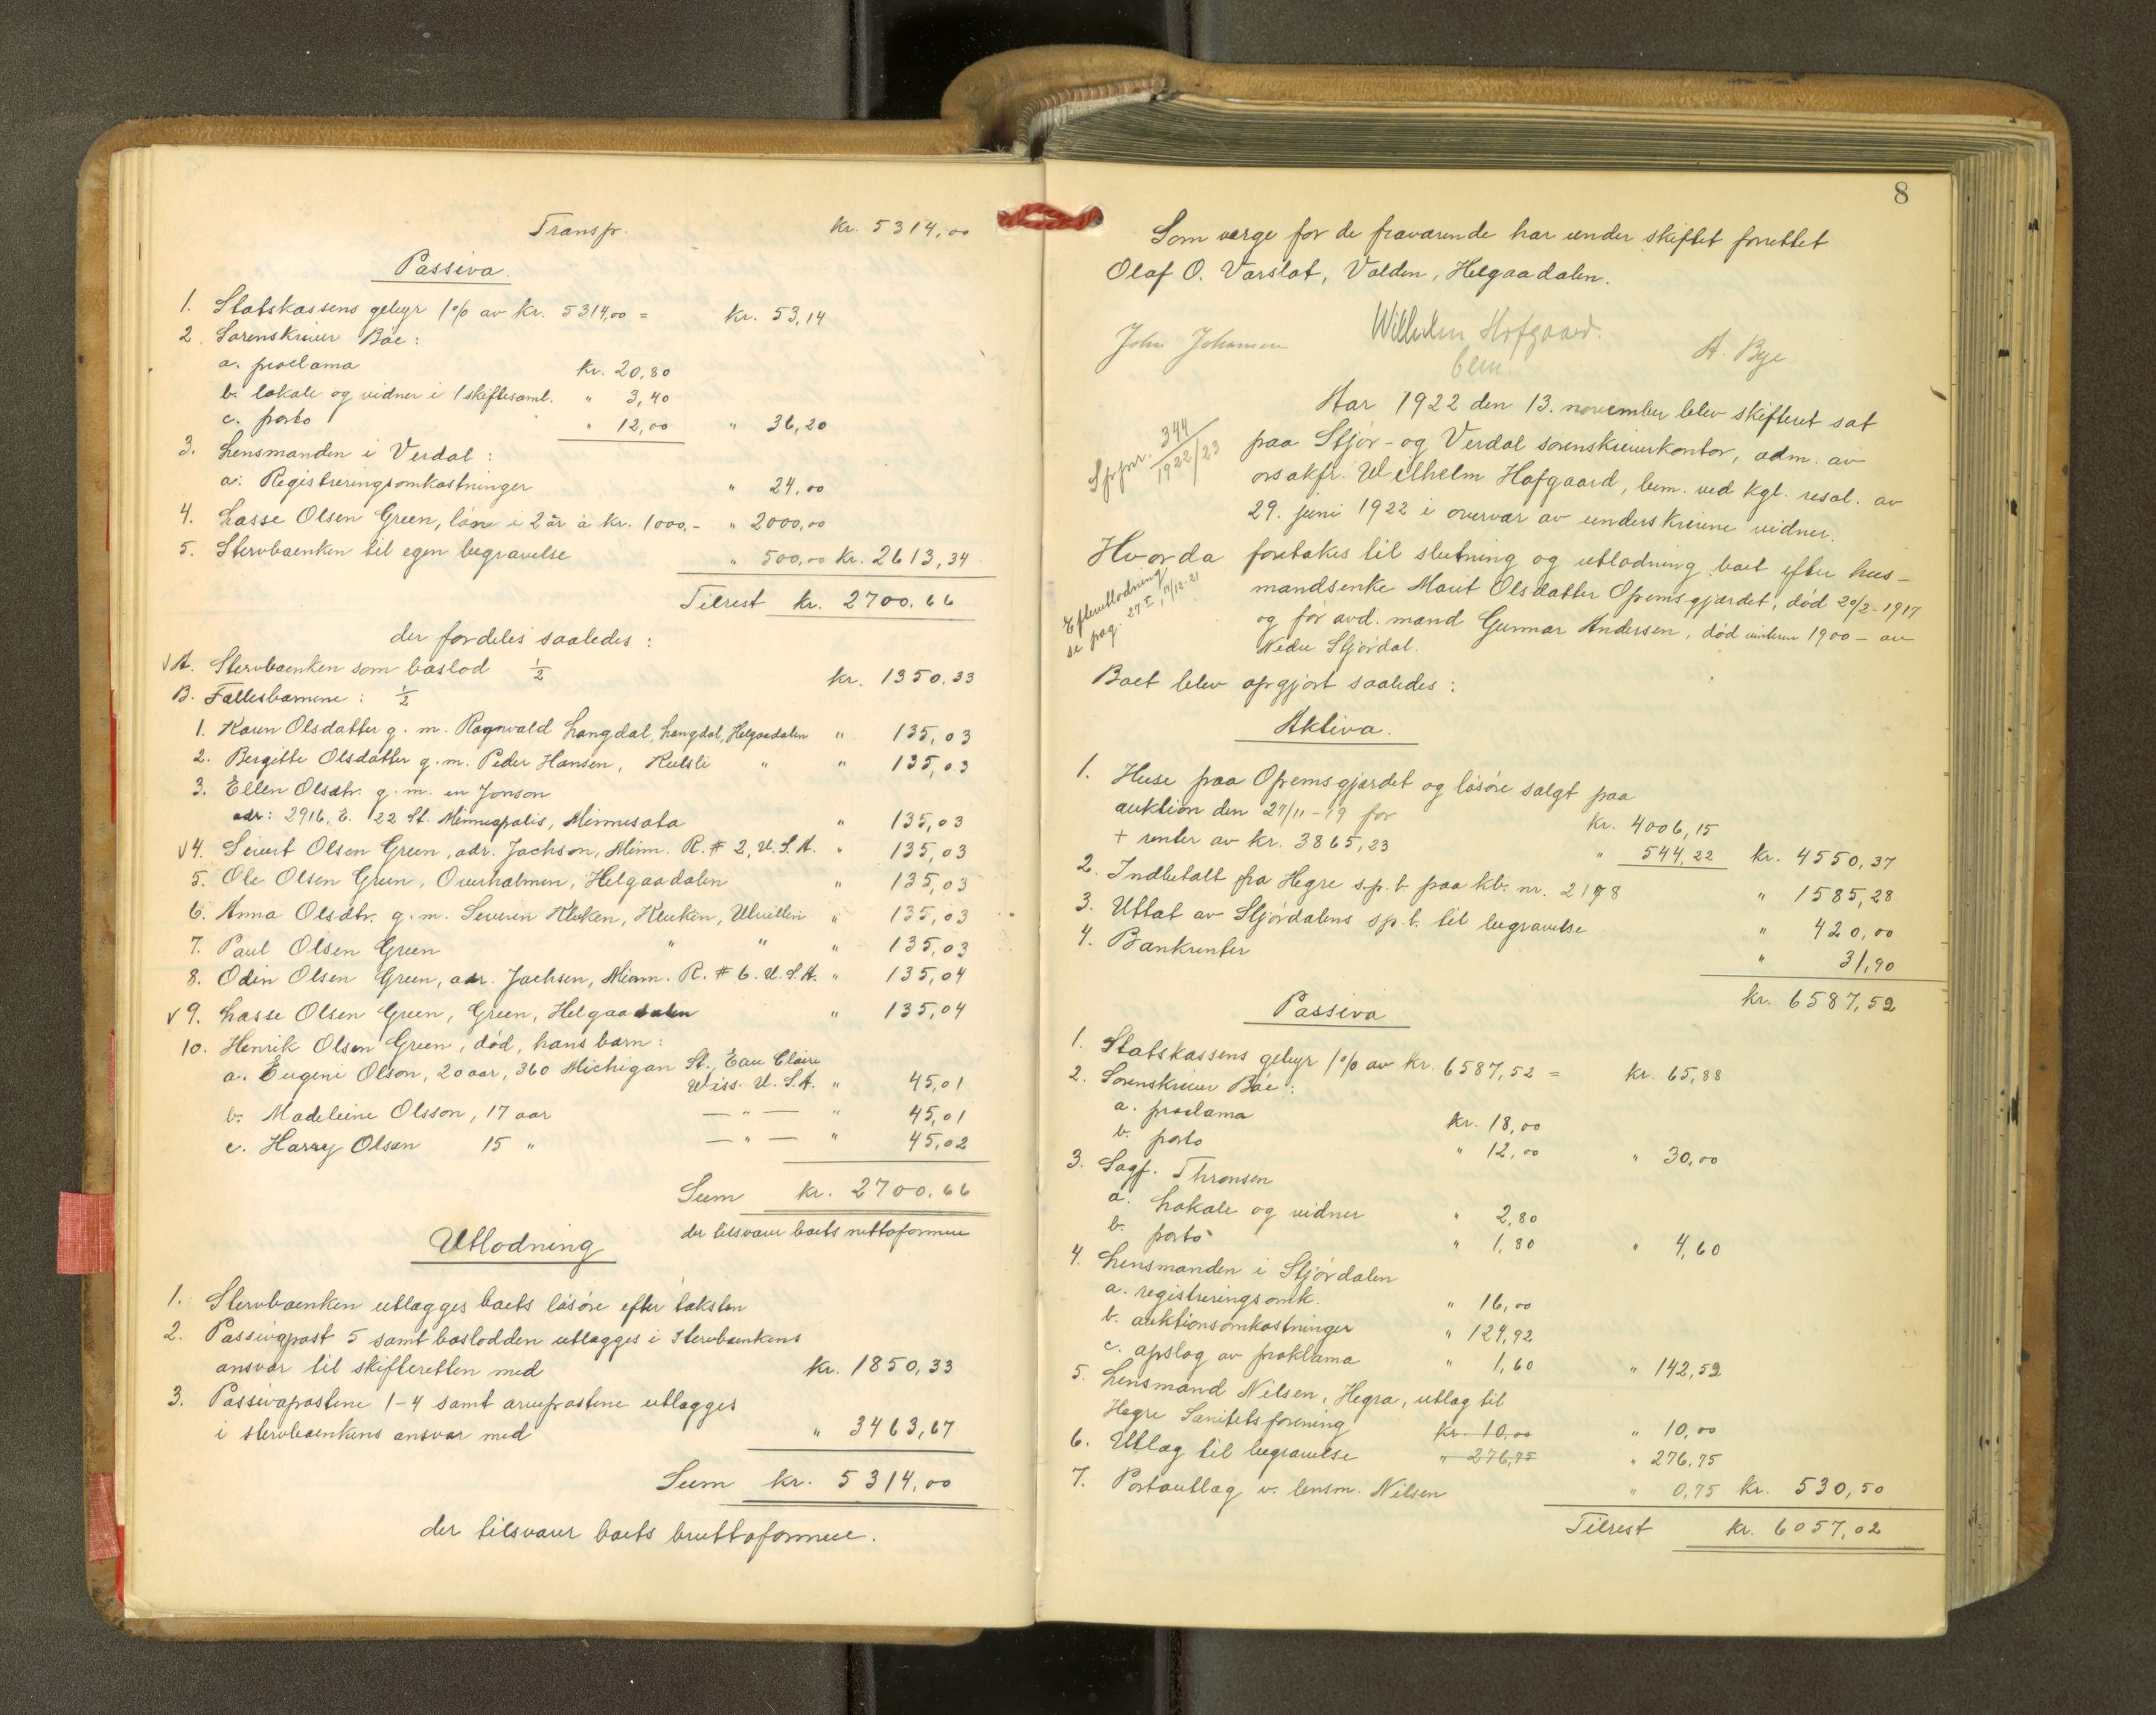 Transp. kr. 5314,00
Passiva.
1. Statskassens gebyr 1% av kr. 5314,00 = kr. 53,14
2. Sorenskriver Bøe:
a. proclama kr. 20,80
b. lokale og vidner i 1 skiftesaml. " 3,40
c. porto " 12,00 " 36,20
3. Lensmanden i Verdal:
a. Registreringsomkostninger " 24,00
4. Lasse Olsen Green, løn i 2 år à kr. 1000.- " 2000,00
5. Stervboenken til egen begravelse " 500,00 kr. 2613,34
Tilrest kr. 2700.66
der fordeles saaledes:
√A. Stervboenken som boslod 1/2 kr. 1350.33
B. Fællesbarnene: 1/2
1. Karen Olsdatter g. m. Ragnvald Langdal, Langdal, Helgaadalen " 135,03
2. Bergitte Olsdatter g. m. Peder Hansen, Kulsli " " 135,03
3. Ellen Olsdtr. g. m. en Jonson
adr: 2916. E. 22 St. Minneapolis, Minnesota " 135,03
√4. Sivert Olsen Green, adr. Jachson, Minn. R. # 2, U.S.A. " 135,03
5. Ole Olsen Green, Overholmen, Helgaadalen " 135,03
6. Anna Olsdtr. g. m. Severin Kluken, Kluken, Ulvillen " 135,03
7. Paul Olsen Green " " " 135,03
8. Odin Olsen Green, adr. Jachsen, Minn. R. # 6. U.S.A. " 135,04
√9. Lasse Olsen Green, Green, Helgaadalen " 135,04
10. Henrik Olsen Green, død, hans barn:
a. Eugeni Olson, 20 aar, 360 Michigan St., Eau Claire
Wiss. U.S.A. " 45,01
b. Madeleine Olsson, 17 aar — " — " 45,01
c. Harry Olsen 15 " — " — " 45,02
Sum kr. 2700.66
der tilsvarer boets nettoformue
Utlodning
1. Stervboenken utlægges boets løsøre efter taksten
2. Passivapost 5 samt boslodden utlægges i stervboenkens
ansvar til skifteretten med kr. 1850,33
3. Passivapostene 1-4 samt arvepostene utlægges
i stervboenkens ansvar med " 3463,67
Sum kr. 5314,00
der tilsvarer boets bruttoformue.
8
Som verge for de fraværende har under skiftet forrettet
Olaf O. Varslot, Volden, Helgaadalen.
John Johansen Wilhelm Hofgaard. A. Bye
bem.
Aar 1922 den 13. november blev skifteret sat
Sp.jnr. 344 / 1922/23 paa Stjør- og Verdal sorenskriverkontor, adm. av
o.r.sakfr. Wilhelm Hofgaard, bem. ved kgl. resol. av
29. juni 1922 i overvær av underskrevne vidner.
Hvorda foretokes til slutning og utlodning boet efter hus-
Efterutlodning
se pag. 27 I, 17/12-21
mandsenke Marit Olsdatter Opemsgjærdet, død 20/2-1917
og før avd. mand Gunnar Andersen, død vinteren 1900 - av
Nedre Stjørdal.
Boet blev opgjort saaledes:
Aktiva.
1. Huse paa Opemsgjærdet og løsøre solgt paa
auktion den 27/11-19 for kr. 4006,15
+ renter av kr. 3865,23 " 544,22 kr. 4550,37
2. Indbetalt fra Hegre sp.b. paa kb. nr. 2198 " 1585,28
3. Uttat av Stjørdalens sp.b. til begravelse " 420,00
4. Bankrenter " 31,90
kr. 6587,52
Passiva
1. Statskassens gebyr 1% av kr. 6587,52 = kr. 65,88
2. Sorenskriver Bøe:
a. proclama kr. 18,00
b. porto " 12,00 " 30,00
3. Sagf. Thronsen
a. Lokale og vidner " 2,80
b. porto " 1,80 " 4,60
4. Lensmanden i Stjørdalen
a. registreringsomk. " 16,00
b. auktionsomkostninger " 124,92
c. opslag av proklama " 1,60 " 142,52
5. Lensmand Nilsen, Hegra, utlæg til
Hegre Sanitetsforening kr. 10,00 " 10,00
6. Utlæg til begravelse " 276,75 " 276,75
7. Portoutlæg v. lensm. Nilsen " 0,75 kr. 530,50
Tilrest kr. 6057,02